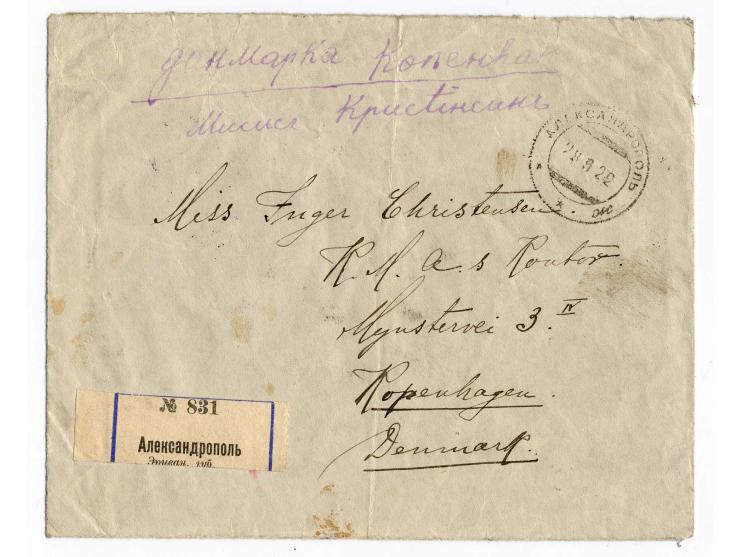 Данмарка Копенhаг
Мисись Кристiнсинъ
АЛЕКСАНДРОПОЛЬ
28 9 22
Miss Inger Christensen.
K. M. A. s Kontor.
Mynstervei 3. IV
Kopenhagen.
Denmark.
№ 831
Александрополь
Эриван. губ.